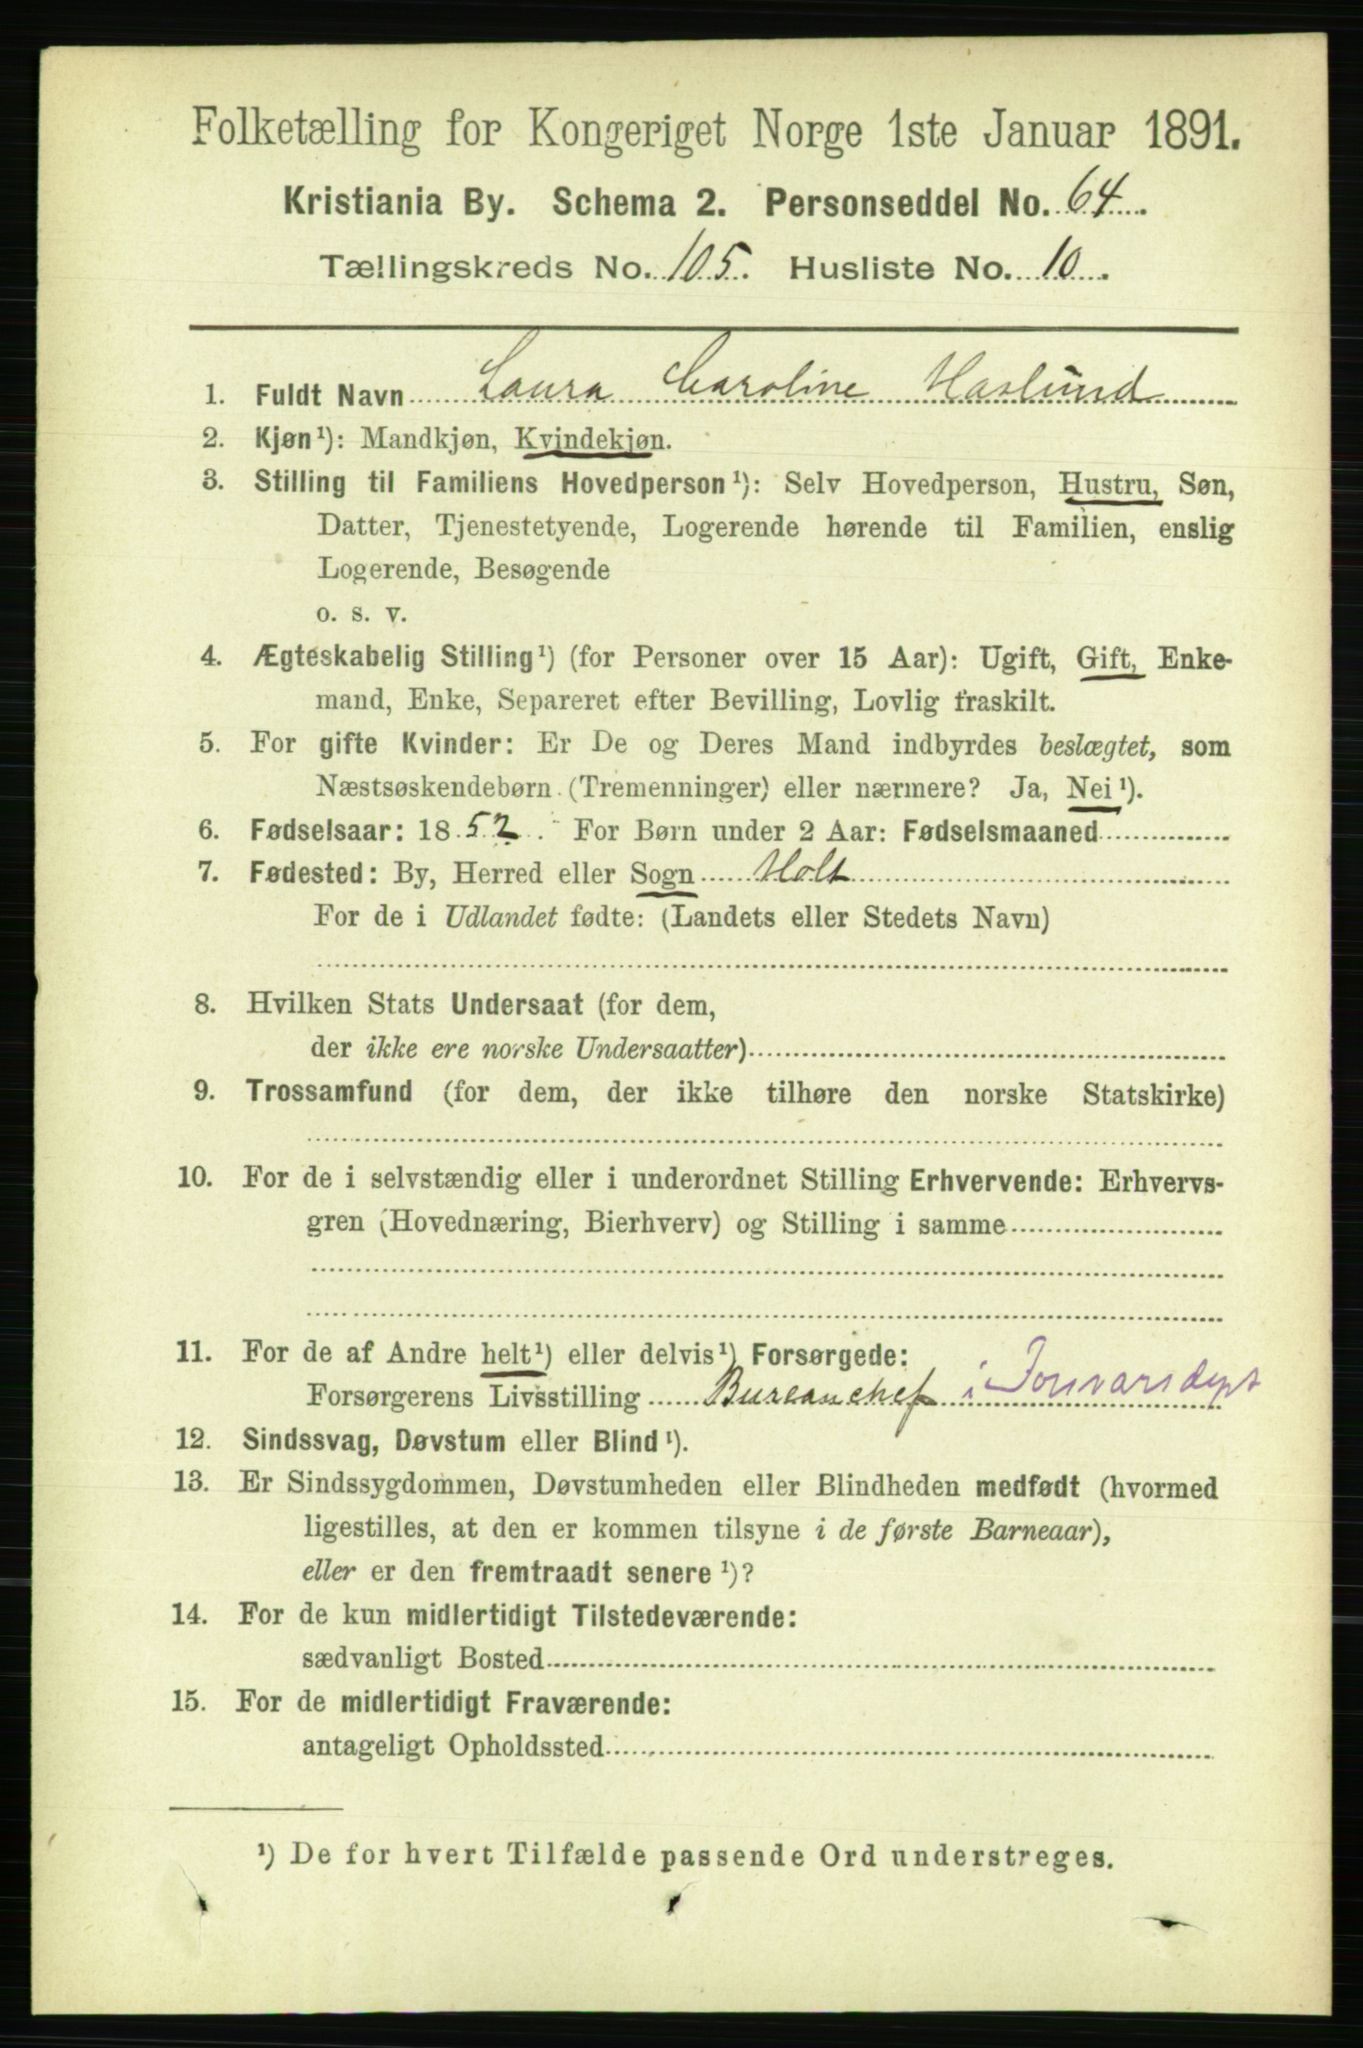 Folketælling for Kongeriget Norge 1ste Januar 1891.
Kristiania By. Schema 2. Personseddel No. 64.
Tællingskreds No. 105. Husliste No. 10.
1. Fuldt Navn Laura Caroline Haslund
2. Kjøn¹): Mandkjøn, Kvindekjøn.
3. Stilling til Familiens Hovedperson¹): Selv Hovedperson, Hustru, Søn,
Datter, Tjenestetyende, Logerende hørende til Familien, enslig
Logerende, Besøgende
o. s. v.
4. Ægteskabelig Stilling¹) (for Personer over 15 Aar): Ugift, Gift, Enke-
mand, Enke, Separeret efter Bevilling, Lovlig fraskilt.
5. For gifte Kvinder: Er De og Deres Mand indbyrdes beslægtet, som
Næstsøskendebørn (Tremenninger) eller nærmere? Ja, Nei¹).
6. Fødselsaar: 1852. For Børn under 2 Aar: Fødselsmaaned
7. Fødested: By, Herred eller Sogn Holt
For de i Udlandet fødte: (Landets eller Stedets Navn)
8. Hvilken Stats Undersaat (for dem,
der ikke ere norske Undersaatter)
9. Trossamfund (for dem, der ikke tilhøre den norske Statskirke)
10. For de i selvstændig eller i underordnet Stilling Erhvervende: Erhvervs-
gren (Hovednæring, Bierhverv) og Stilling i samme
11. For de af Andre helt¹) eller delvis¹) Forsørgede:
Forsørgerens Livsstilling Bureauchef i Forsvarsdept
12. Sindssvag, Døvstum eller Blind¹).
13. Er Sindssygdommen, Døvstumheden eller Blindheden medfødt (hvormed
ligestilles, at den er kommen tilsyne i de første Barneaar),
eller er den fremtraadt senere¹)?
14. For de kun midlertidigt Tilstedeværende:
sædvanligt Bosted
15. For de midlertidigt Fraværende:
antageligt Opholdssted
¹) De for hvert Tilfælde passende Ord understreges.